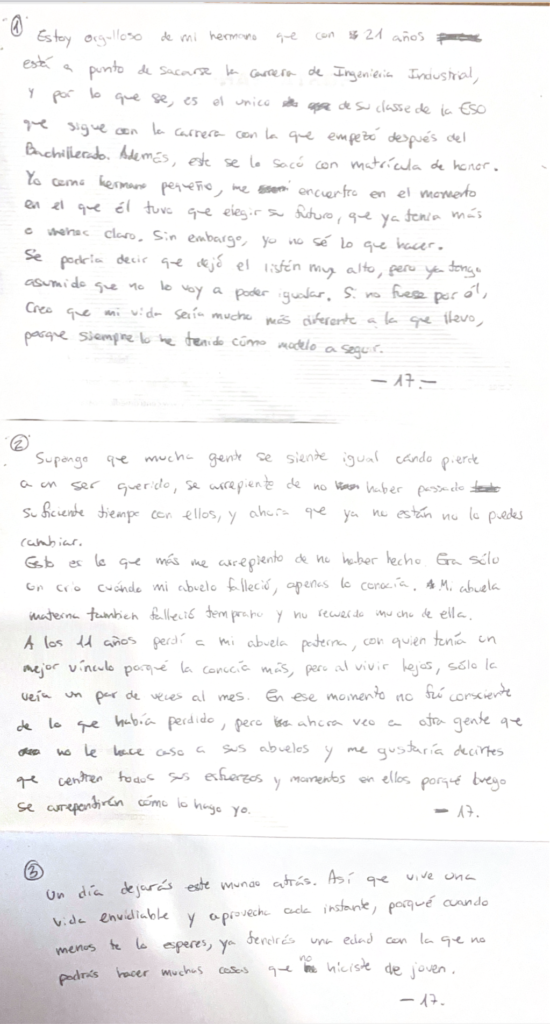 ① Estoy orgulloso de mi hermano que con 21 años
está a punto de sacarse la carrera de Ingenieria Industrial,
y por lo que se, es el unico de su classe de la ESO
que sigue con la carrera con la que empezó después del
Bachillerado. Además, este se lo sacó con matrícula de honor.
Yo como hermano pequeño, me encuentro en el momento
en el que él tuvo que elegir su futuro, que ya tenía más
o menos claro. Sin embargo, yo no sé lo que hacer.
Se podría decir que dejó el listón muy alto, pero ya tengo
asumido que no lo voy a poder igualar. Si no fuese por él,
Creo que mi vida sería mucho más diferente a la que llevo,
porque siempre lo he tenido cómo modelo a seguir.
- 17. -
② Supongo que mucha gente se siente igual cándo pierde
a un ser querido, se arrepiente de no haber passado
suficiente tiempo con ellos, y ahora que ya no están no lo puedes
cambiar.
Esto es lo que más me arrepiento de no haber hecho. Era sólo
un crío cuándo mi abuelo falleció, apenas lo conocía. Mi abuela
materna tambien falleció temprano y no recuerdo mucho de ella.
A los 11 años perdí a mi abuela paterna, con quien tenía un
mejor vínculo porqué la conocía más, pero al vivir lejos, sólo la
veía un par de veces al mes. En ese momento no fuí consciente
de lo que había perdido, pero ahora veo a otra gente que
no le hace caso a sus abuelos y me gustaría decirles
que centren todos sus esfuerzos y momentos en ellos porqué luego
se arrepentirán cómo lo hago yo.
- 17.
③ Un día dejarás este mundo atrás. Así que vive una
vida envidiable y aprovecha cada instante, porqué cuando
menos te lo esperes, ya tendrás una edad con la que no
podrás hacer muchas cosas que no hiciste de joven.
- 17.